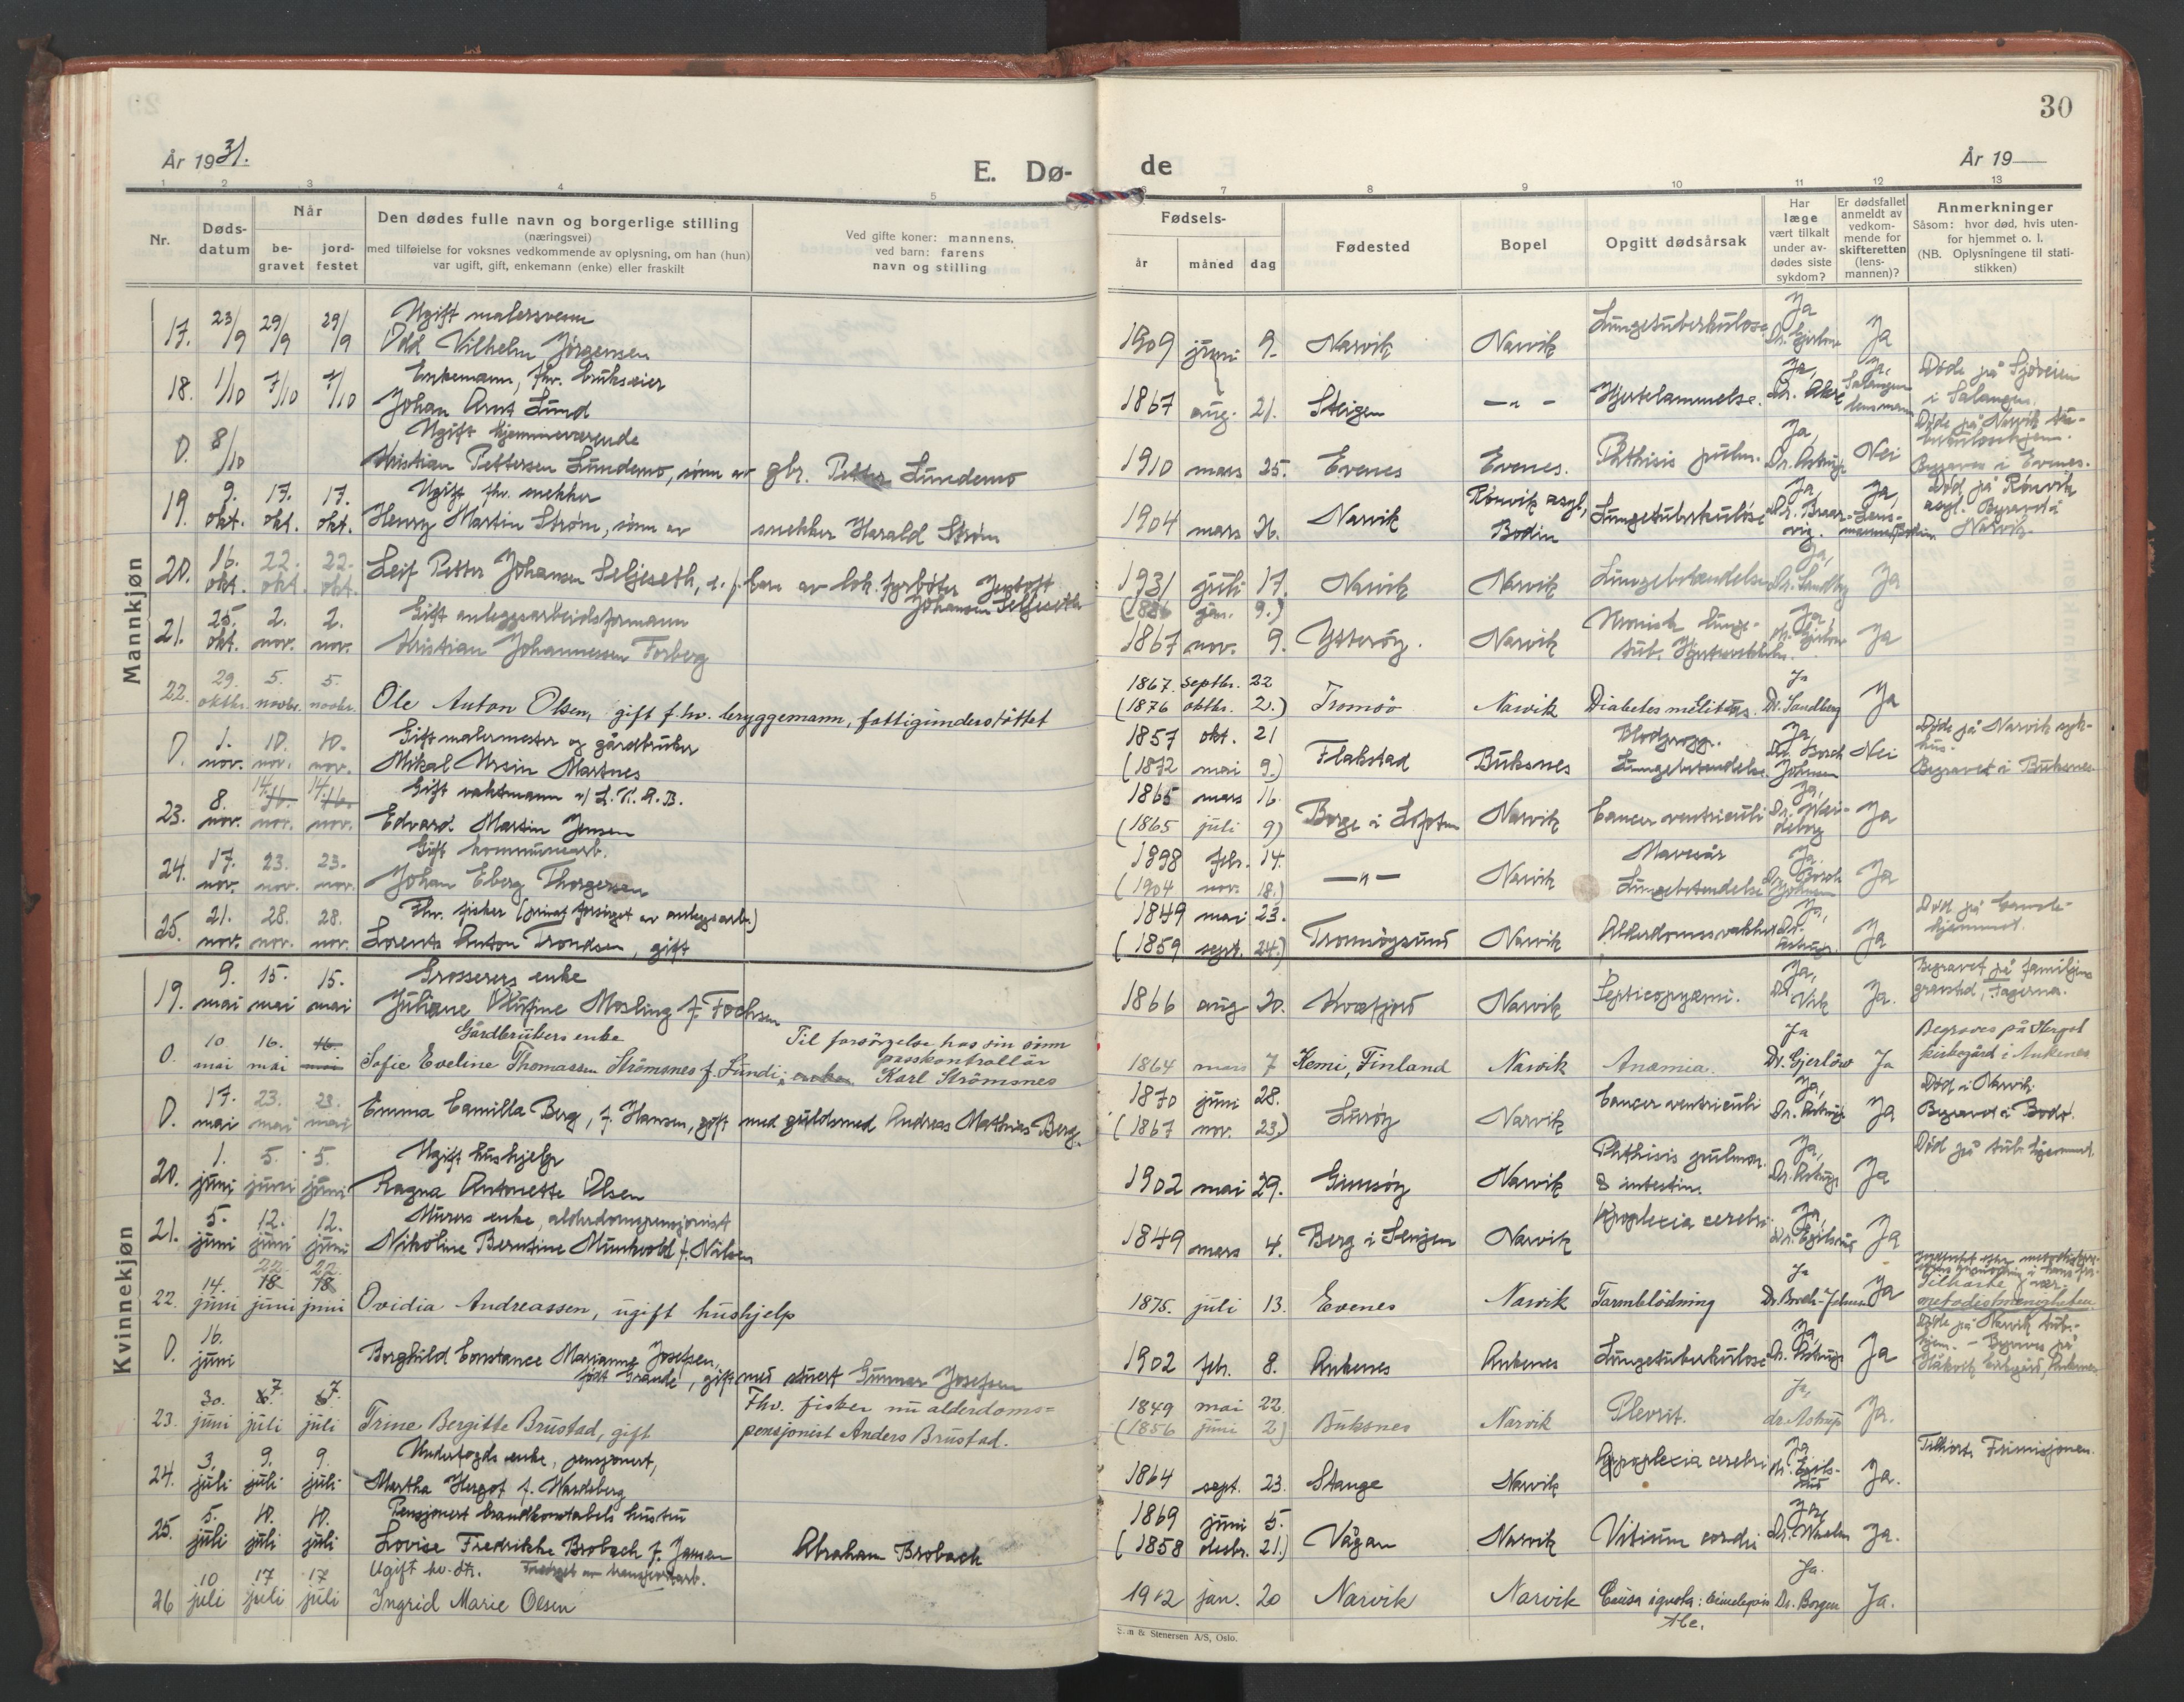 30
År 1931.
E. Dø-
de
År 19
1 2 3 4 5 6 7 8 9 10 11 12 13
Nr.
Døds-
datum
Når
be-
gravet
jord-
festet
Den dødes fulle navn og borgerlige stilling
(næringsvei)
med tilføielse for voksnes vedkommende av oplysning, om han (hun)
var ugift, gift, enkemann (enke) eller fraskilt
Ved gifte koner: mannens,
ved barn: farens
navn og stilling
Fødsels-
år måned dag
Fødested
Bopel
Opgitt dødsårsak
Har
læge
vært tilkalt
under av-
dødes siste
sykdom?
Er dødsfallet
anmeldt av
vedkom-
mende for
skifteretten
(lens-
mannen)?
Anmerkninger
Såsom: hvor død, hvis uten-
for hjemmet o. l.
(NB. Oplysningene til stati-
stikken)
Mannkjøn
Ugift malersvenn
17. 23/9 29/9 29/9 Odd Vilhelm Jørgensen 1909 juni 9. Narvik Narvik Lungetuberkulose Ja Ja
Enkemann, fhv. brukseier
18. 1/10 7/10 7/10 Johan Arnt Lund 1867 aug. 21. Steigen —"— Hjertelammelse. Ja, Dr. Aker Ja, Salangen lensmann Døde på Sjøveien i Salangen.
Ugift hjemmeværende
0. 8/10 Kristian Pettersen Lundemo, sønn av gbr. Petter Lundemo 1910 mars 25. Evenes Evenes. Phthisis pulm. Ja, Dr. Astrup Nei Døde på Narvik tuberkulosehjem. Begraves i Evenes.
Ugift fhv. snekker
19. 9. okt. 17. okt. 17. okt. Henry Martin Strøm, sønn av snekker Harald Strøm 1904 mars 26. Narvik Rønvik asyl, Bodin Lungetuberkulose Ja, Ja, Død på Rønvik asyl. Begravd i Narvik.
20. 16. okt. 22. okt. 22. okt. Leif Petter Johansen Seljeseth, e. f. barn av lok. fyrbøter Jentoft Johansen Seljeseth 1931 juli 17. Narvik Narvik Lungebetendelse Ja, Dr. Sandberg Ja
Gift anleggsarbeidsformann
21. 25. okt. 2. nov. 2. nov. Kristian Johannessen Forberg 1867 nov. 9. Ytterøy. Narvik Kronisk lunge- Ja, Dr. Gjerløw Ja
22. 29. oktbr. 5. novbr. 5. novbr. Ole Anton Olsen, gift f.hv. bryggemann, fattigunderstøttet 1867. septbr. 22 (1876 oktbr. 2.) Tromsø Narvik Diabetes mellitus. Ja Dr. Sandberg Ja
Gift malermester og gårdbruker
0. 1. nov. 10. nov. 10. nov. Mikal Ursin Martnes 1857 okt. 21 (1872 mai 9.) Flakstad Buksnes Blodpropp. Lungebetendelse. Ja, Dr. Borch Johnsen Nei Døde på Narvik sykhus. Begravet i Buksnes.
Gift vaktmann v/ L.K.A.B.
23. 8. nov. 14. 16. nov. 14. 16. nov. Edvard Martin Jensen 1865 mars 16. (1865 juli 9) Borge i Lofoten Narvik Cancer ventriculi Ja, Ja
Gift kommunearb.
24. 17. nov. 23. nov. 23. nov. Johan Eberg Thorgersen 1898 febr. 14. (1904 nov. 18.) —"— Narvik Mavesår Lungebetendelse Ja. Dr. Borch Johnsen Ja
Fhv. fisker (privat forsørget av anlegsarb.)
25. 21. nov. 28. nov. 28. nov. Lorents Anton Trondsen, gift 1849 mai 23. (1859 sept. 24.) Tromsøysund Narvik Alderdomssvakhet Ja, Dr. Astrup Ja Død på Gamlehjemmet.
Kvinnekjøn
Grosserers enke
19. 9. mai 15. mai 15. mai Juliane Olufine Mosling f. Fochsen 1866 aug 20. Kvæfjord Narvik Septicopyæmi. Ja, Dr. Vik Ja. Begravet på familiens gravsted, Fagernes.
Gårdbrukers enke
0. 10 mai 16. mai 16. mai Sofie Eveline Thomassen Strömsnes f. Lundi; enke. Til forsörgelse hos sin sönn passkontrollör Karl Strömsnes 1864 mars 7 Kemi, Finland Narvik Anæmia. Ja Dr. Gjerlöw Ja Begraves på Hergot kirkegård i Ankenes
0. 17. mai 23. mai 23. mai Emma Camilla Berg, f. Hansen, gift med guldsmed Andreas Mathias Berg. 1870 juni 28. (1867 nov. 23.) Lurøy Narvik Cancer ventriculi Ja, Dr. Astrup Ja Død i Narvik. Begravet i Bodø.
Ugift hushjelp
20. 1. juni 5. juni 5. juni Ragna Antonette Olsen 1902 mai 29. Gimsøy Narvik Phthisis pulmon. & intestin. Ja, Dr. Astrup Ja Død på tub. hjemmet.
Murers enke, alderdomspensjonist
21. 5. juni 12. juni 12. juni Nikoline Berntine Munkvold f. Nilsen 1849 mars 4. Berg i Senjen Narvik Apoplexia cerebri Ja, Dr. Egilsrud Ja
22. 14. juni 22. 18 juni 22. 18 juni Ovidia Andreassen, ugift hushjelp 1875. juli 13. Evenes Narvik Tarmblödning Ja Dr. Borch-Johnsen Ja Tilhørte metodistmenigheten
0. 16. juni Borghild Constance Marianne Josefsen, født Grande, gift med stuert Gunnar Josefsen 1902 febr. 8. Ankenes Ankenes Lungetuberkulose Ja, Dr. Astrup Ja Døde på Narvik tub.-hjem. — Begraves på Håkvik kirkegård, Ankenes
23. 30. juni 7. juli 7. juli Trine Bergitte Brustad, gift Fhv. fisker nu alderdoms= pensjonist Anders Brustad. 1849 mai 22. (1856 juni 2) Buksnes Narvik Plevrit. Ja, dr. Astrup Ja.
Underfogds enke, pensjonert,
24. 3. juli 9. juli 9. juli Martha Hergot f. Wardsberg 1864 sept. 23. Stange Narvik Apoplexia cerebri Ja Dr. Egilsrud Ja. Tilhørte Frimisjonen.
Pensjonert brandkonstabels hustru
25. 5. juli 10. juli 10. juli Lovise Fredrikke Brobach f. Jansen Abraham Brobach 1869 juni 5. (1858 desbr. 21.) Vågan Narvik Vitium cordis Ja, Ja.
Ugift hv. dtr. Forsørget av transportarb.
26 10 juli 17 juli 17 juli Ingrid Marie Olsen 1902 jan. 20 Narvik Narvik Causa ignota: Ja. Dr. Borgen Ja.
Sem & Stenersen A/S, Oslo.